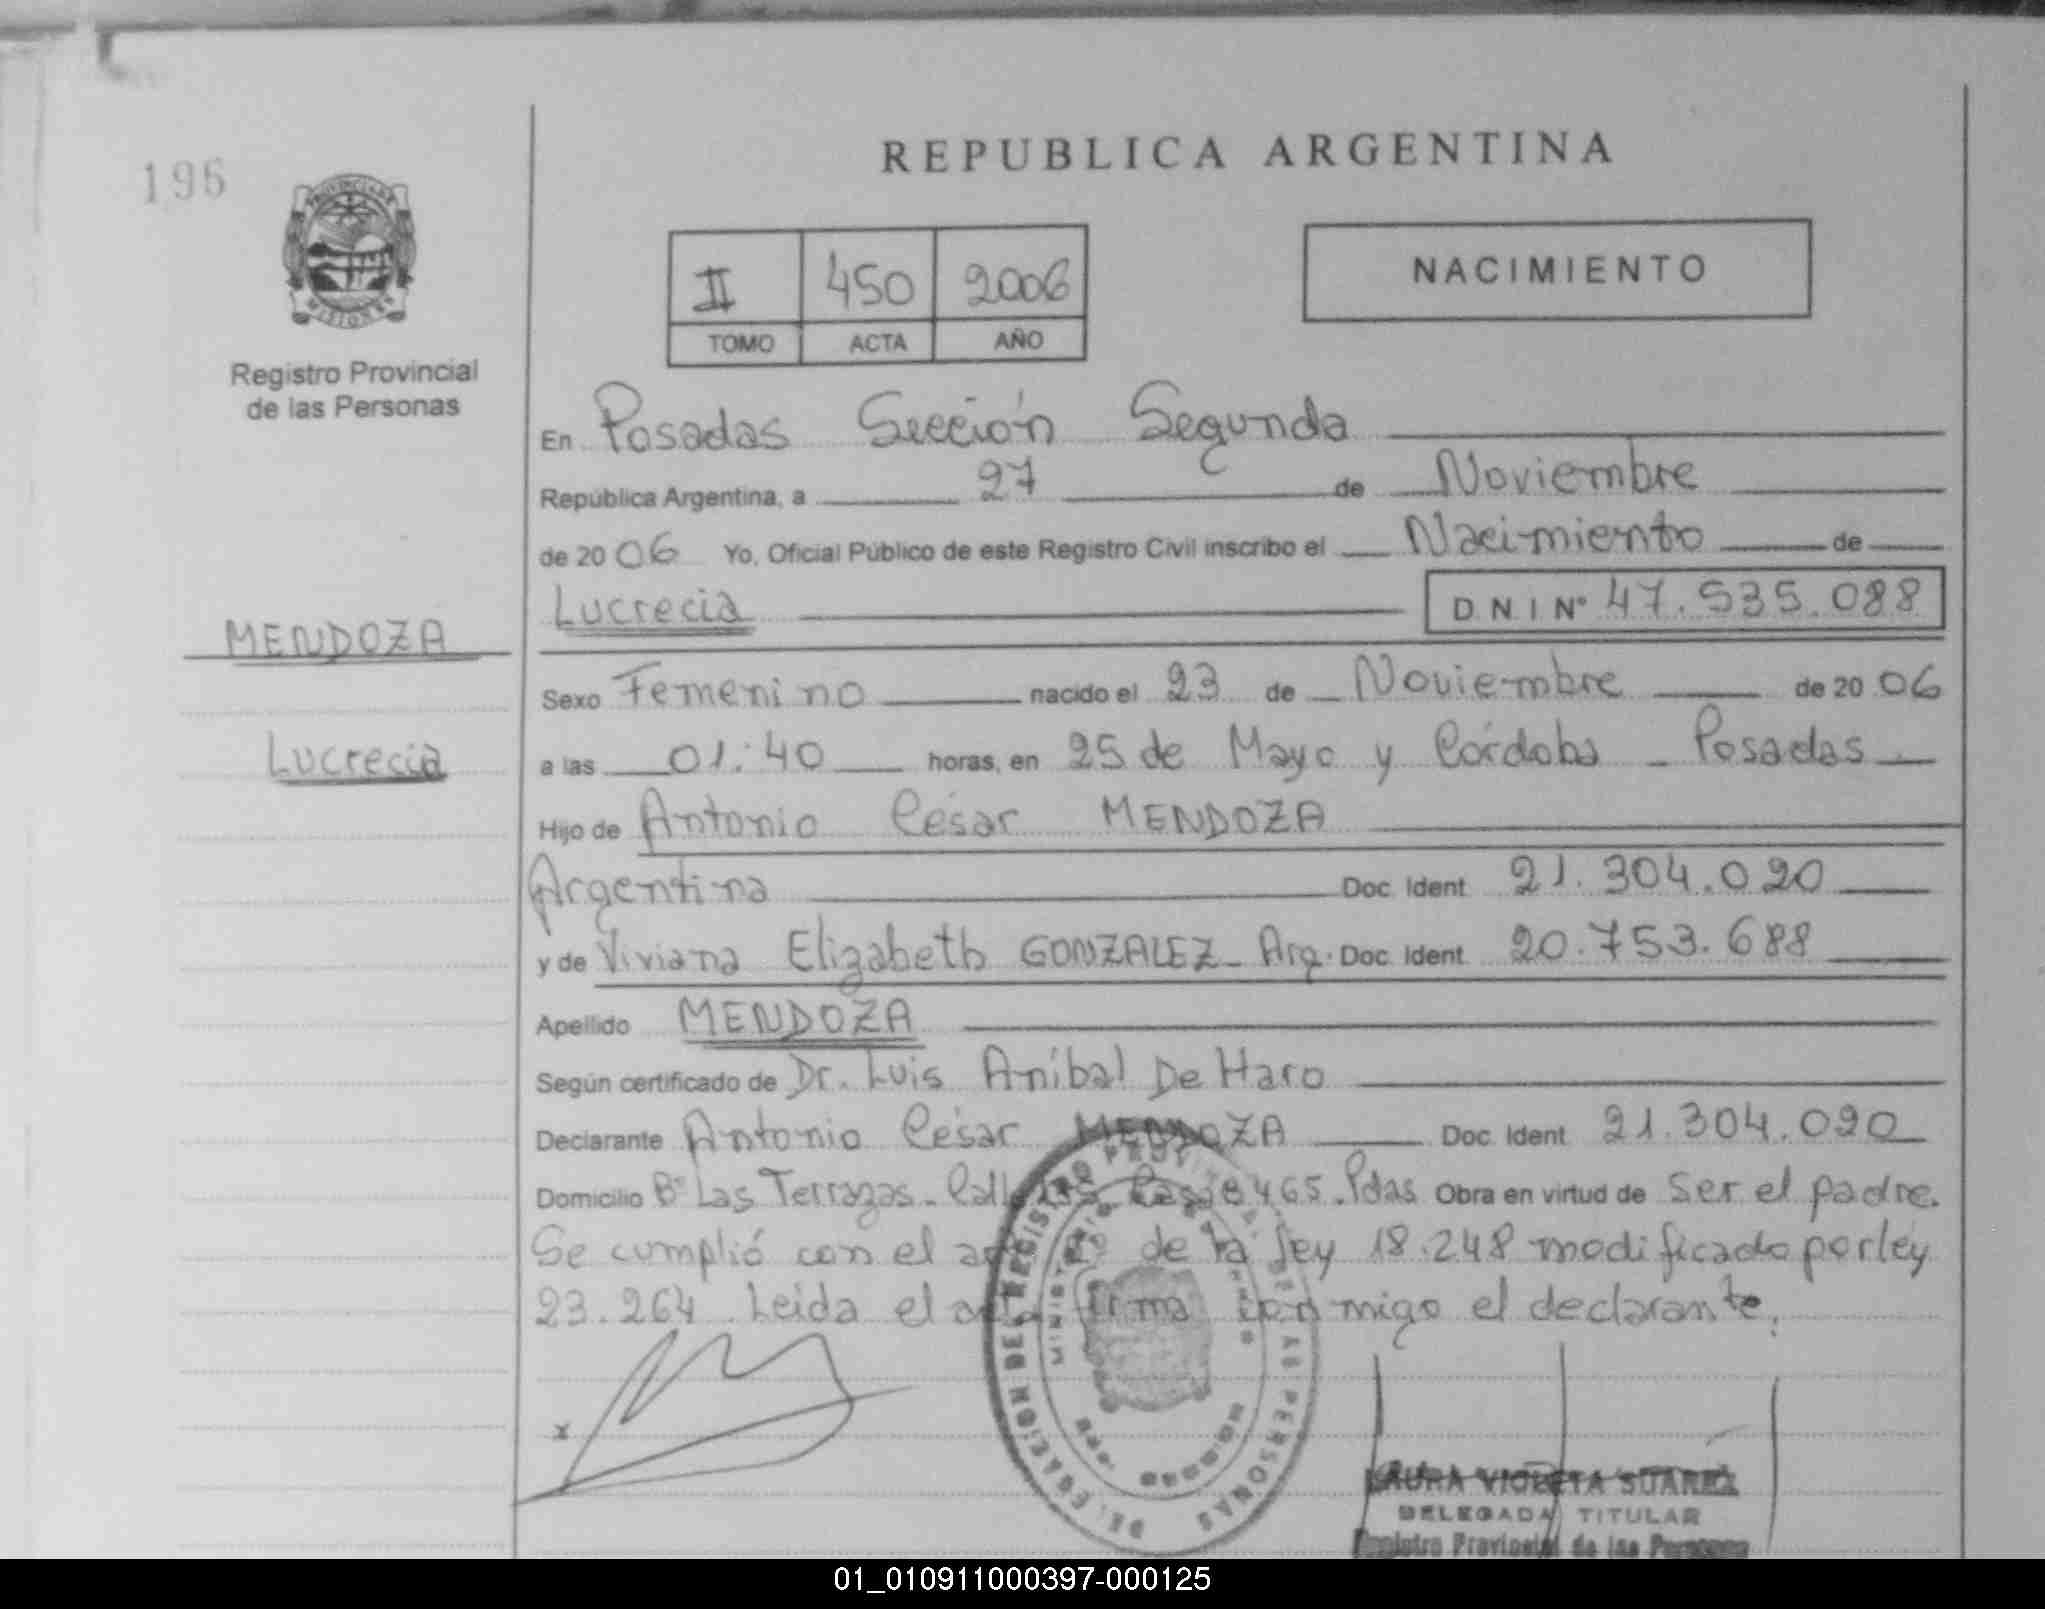 REPUBLICA ARGENTINA
196
PROVINCIA DE
MISIONES
Registro Provincial
de las Personas
II 450 2006
TOMO ACTA AÑO
NACIMIENTO
En Posadas Sección Segunda
República Argentina, a 27 de Noviembre
de 2006 Yo, Oficial Público de este Registro Civil inscribo el Nacimiento de
Lucrecia D.N.I Nº 47.535.088
MENDOZA
Lucrecia
Sexo Femenino nacido el 23 de Noviembre de 2006
a las 01:40 horas, en 25 de Mayo y Córdoba - Posadas
Hijo de Antonio César MENDOZA
Argentina Doc. Ident 21.304.020
y de Viviana Elizabeth GONZALEZ - Arg. Doc. Ident 20.753.688
Apellido MENDOZA
Según certificado de Dr. Luis Aníbal De Haro
Declarante Antonio César MENDOZA Doc. Ident 21.304.020
Domicilio Bº Las Terrazas - 465. Pdas Obra en virtud de ser el padre.
Se cumplió con el de la ley 18.248 modificado por ley
23.264. Leida el acta firma conmigo el declarante.
x
DELEGACION DEL REGISTRO PROVINCIAL DE LAS PERSONAS
LAURA VIOLETA SUAREZ
DELEGADA TITULAR
Registro Provincial de las Personas
01_010911000397-000125